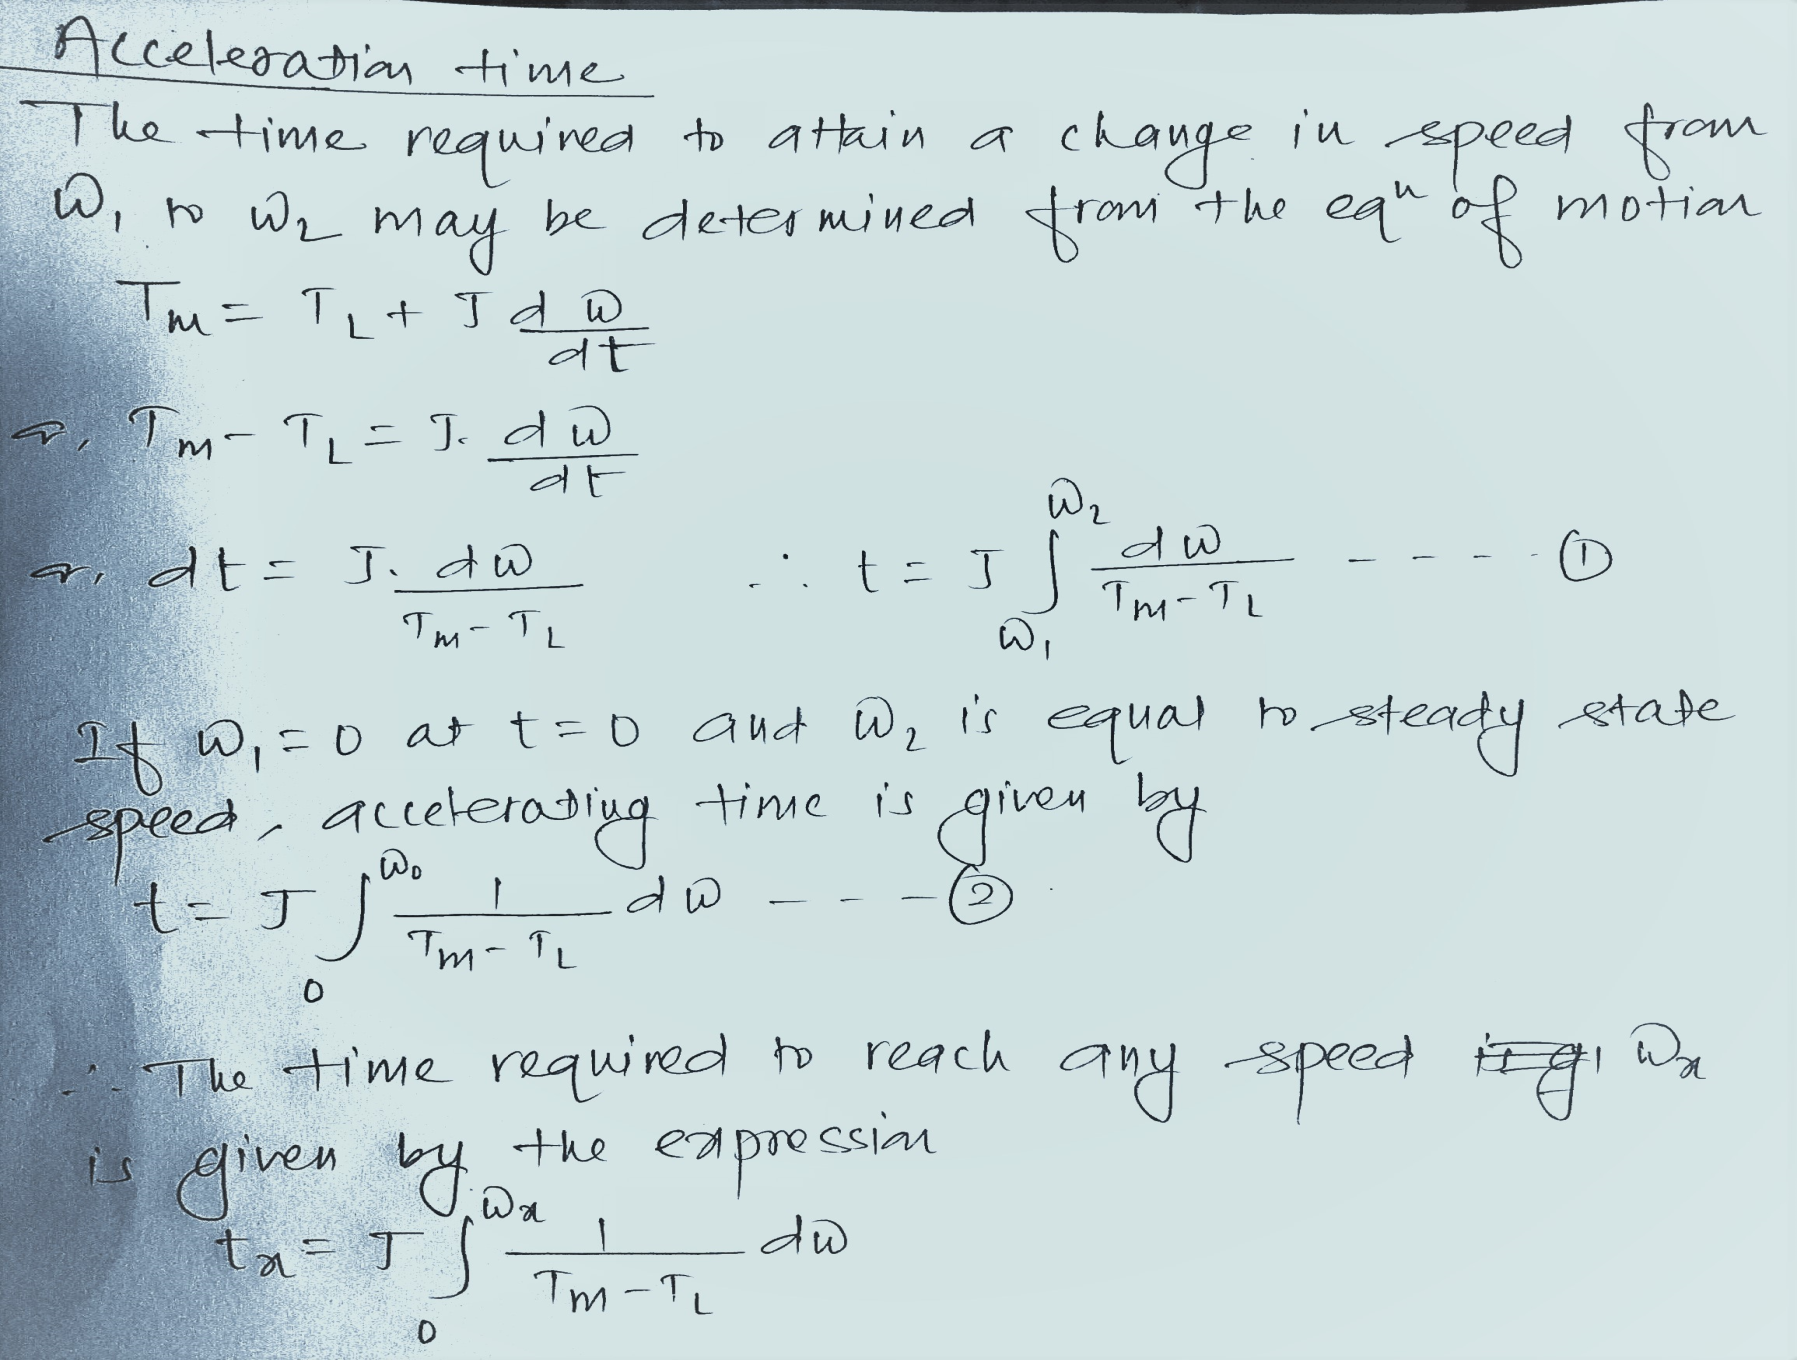 Acceleration time
The time required to attain a change in speed from
ω₁ to ω₂ may be determined from the eqⁿ of motion
Tm = TL + J dω/dt
or, Tm - TL = J. dω/dt
or, dt = J. dω/(Tm - TL) ∴ t = J ∫_{ω₁}^{ω₂} dω/(Tm - TL) ---- ①
If ω₁ = 0 at t = 0 and ω₂ is equal to steady state
speed, accelerating time is given by
t = J ∫_{0}^{ω₀} 1/(Tm - TL) dω --- ②
∴ The time required to reach any speed ωx
is given by the expression
tx = J ∫_{0}^{ωx} 1/(Tm - TL) dω